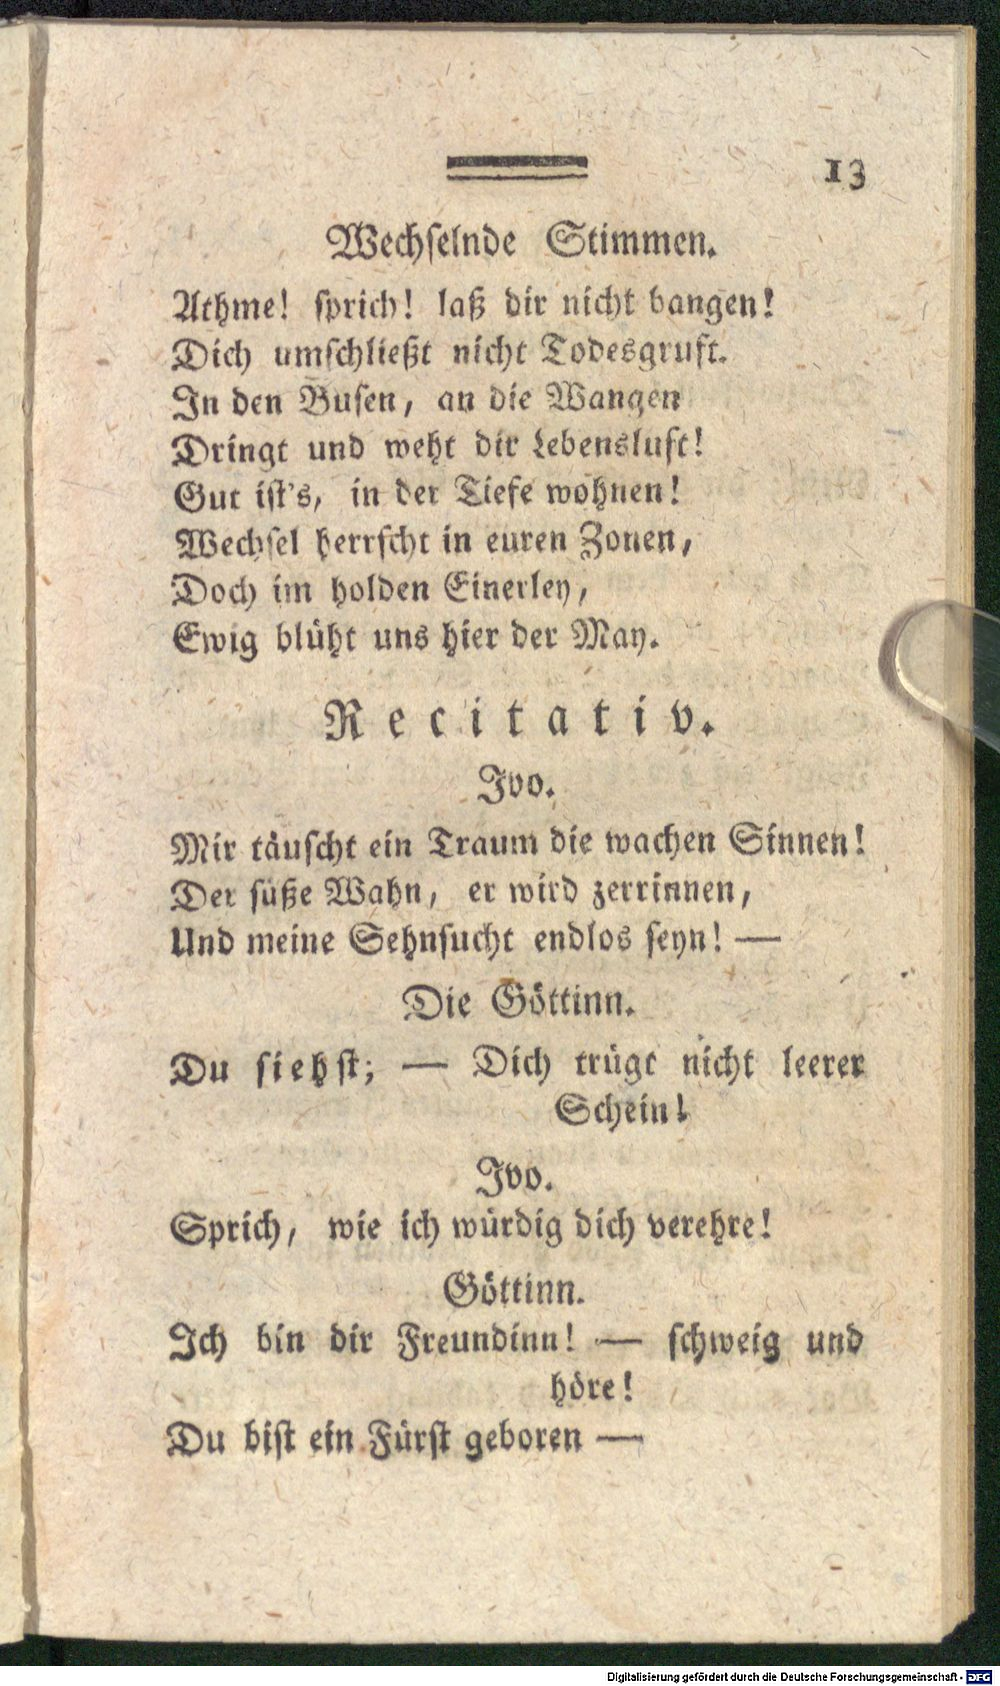 13
Wechselnde Stimmen.
Athme! sprich! laß dir nicht bangen!
Dich umschließt nicht Todesgruft.
In den Busen, an die Wangen
Dringt und weht dir Lebensluft!
Gut ist's, in der Tiefe wohnen!
Wechsel herrscht in euren Zonen,
Doch im holden Einerley,
Ewig blüht uns hier der May.
Recitativ.
Ivo.
Mir täuscht ein Traum die wachen Sinnen!
Der süße Wahn, er wird zerrinnen,
Und meine Sehnsucht endlos seyn! —
Die Göttinn.
Du siehst; — Dich trügt nicht leerer
Schein!
Ivo.
Sprich, wie ich würdig dich verehre!
Göttinn.
Ich bin dir Freundinn! — schweig und
höre!
Du bist ein Fürst geboren —
Digitalisierung gefördert durch die Deutsche Forschungsgemeinschaft - DFG